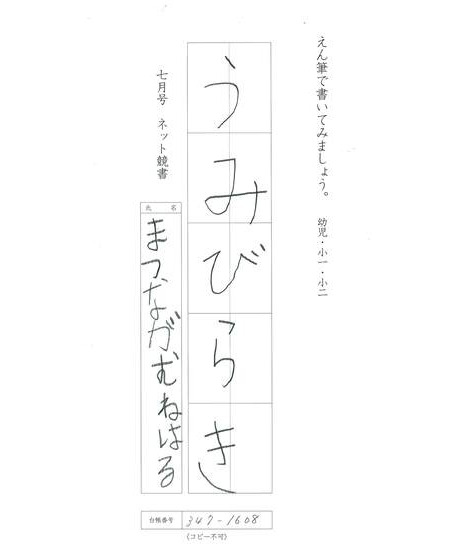 えん筆で書いてみましょう。 幼児・小一・小二
うみびらき
七月号 ネット競書
氏名
まつながむねはる
台帳番号 347-1608
(コピー不可)